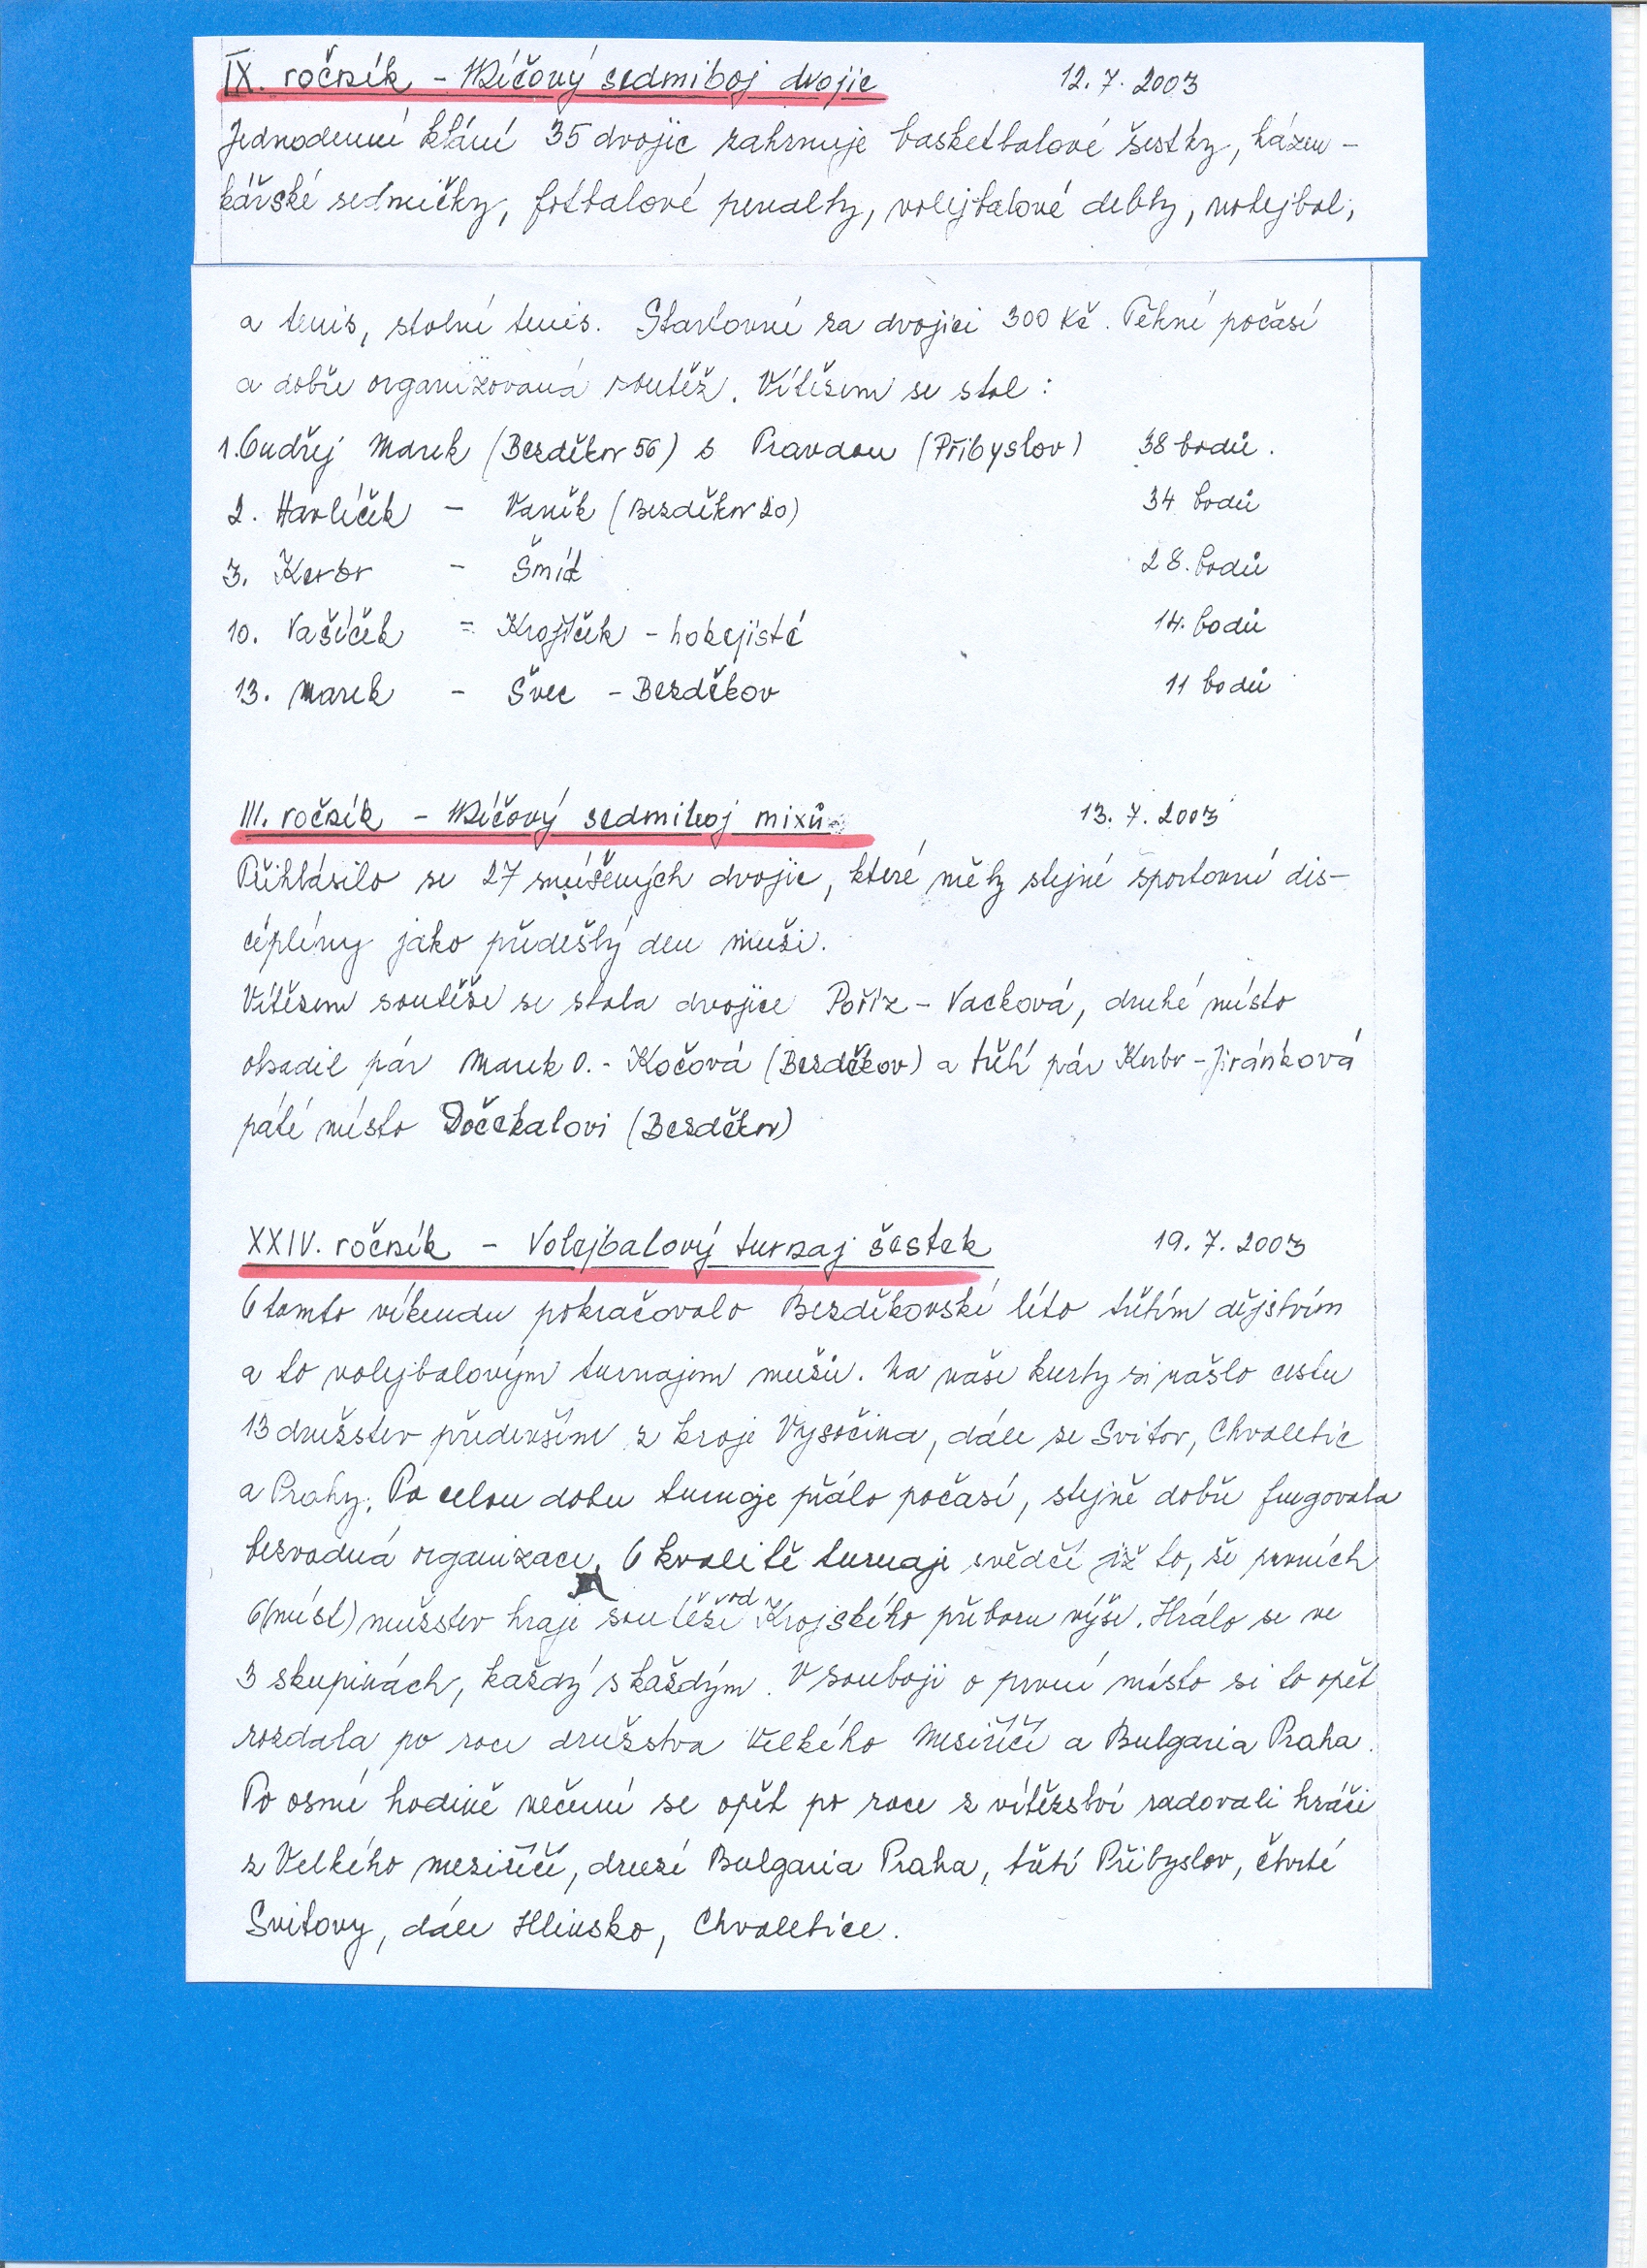 IX. ročník - Míčový sedmiboj dvojic 12. 7. 2003
Jednodenní klání 35 dvojic zahrnuje basketbalové šestky, házen-
kářské sedmičky, fotbalové penalty, volejbalové debly, nohejbal,
a tenis, stolní tenis. Startovné za dvojici 300 Kč. Pěkné počasí
a dobře organizovaná soutěž. Vítězem se stal :
1. Ondřej Marek (Bezděkov 56) s Pravdou (Přibyslov) 38 bodů.
2. Havlíček - Vaněk (Bezděkov 20) 34 bodů
3. Kerbr - Šmíd 28. bodů
10. Vašíček = Krajíček - hokejisté 14. bodů
13. Marek - Švec - Bezděkov 11 bodů
III. ročník - Míčový sedmiboj mixů 13. 7. 2003
Přihlásilo se 27 smíšených dvojic, které měly stejné sportovní dis-
ciplíny jako předešlý den muži.
Vítězem soutěže se stala dvojice Poříz - Vacková, druhé místo
obsadil pár Marek O. - Kočová (Bezděkov) a třetí pár Kerbr - Jiránková
páté místo Dočekalovi (Bezděkov)
XXIV. ročník - Volejbalový turnaj šestek 19. 7. 2003
O tomto víkendu pokračovalo Bezděkovské léto třetím dějstvím
a to volejbalovým turnajem mužů. Na naše kurty si našlo cestu
13 družstev především z kraje Vysočina, dále ze Svitav, Chvaletic
a Prahy. Po celou dobu turnaje přálo počasí, stejně dobře fungovala
bezvadná organizace. O kvalitě turnaje svědčí již to, že prvních
6 (míst) mužstev hraje soutěže od Krajského přeboru výše. Hrálo se ve
3 skupinách, každý s každým. V souboji o první místo si to opět
rozdala po roce družstva Velkého Meziříčí a Bulgaria Praha.
Po osmé hodině večerní se opět po roce z vítězství radovali hráči
z Velkého meziříčí, druzí Bulgaria Praha, třetí Přibyslav, čtvrté
Svitavy, dále Hlinsko, Chvaletice.